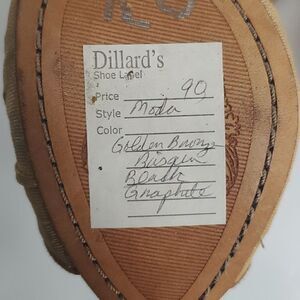 Dillard's
Shoe Label
Price 90
Style Moda
Color
Golden Bronze
Bisque
Black
Graphite